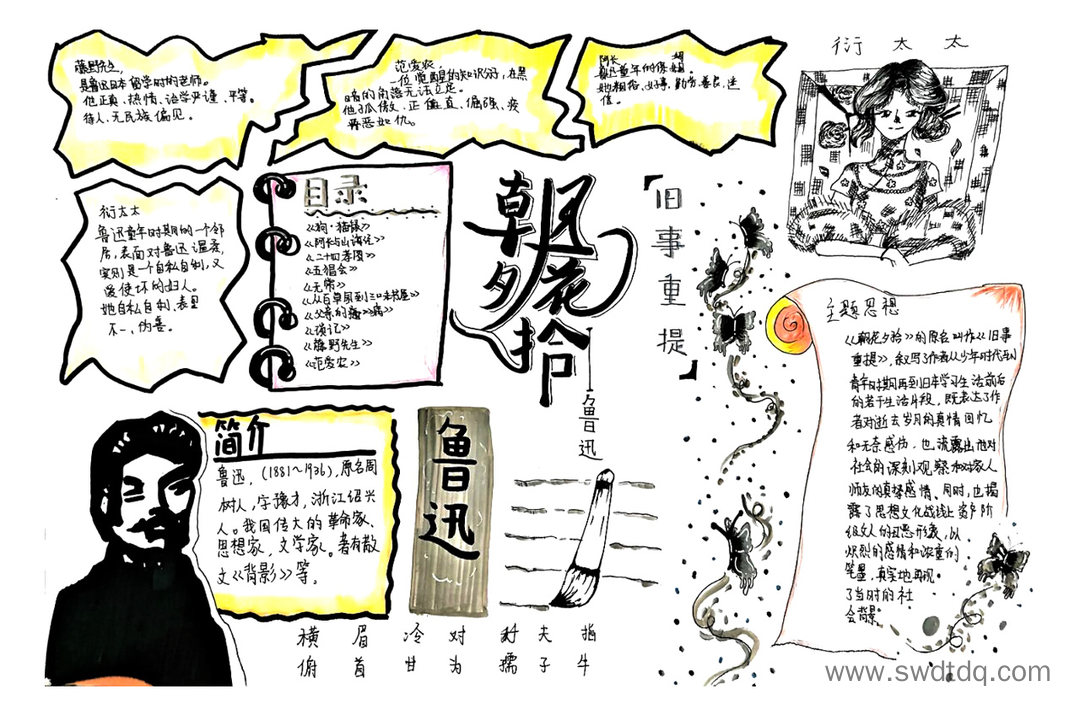 藤野先生,
是鲁迅日本留学时的老师。
他正直、热情、治学严谨、平等。
待人、无民族偏见。
范爱农,
一位觉醒的知识分子,在黑
暗的角落无法立足。
他孤傲、正值直、倔强、疾
恶如仇。
阿长 妈
鲁迅童年的保姆
她粗俗、好事、勤劳、善良、迷
信。
衍太太
衍太太
鲁迅童年时期的一个邻
居,表面对鲁迅温柔,
实则是一个自私自利,又
爱使坏的妇人。
她自私自利、表里
不一、伪善。
目录
《狗·猫鼠》
《阿长与山海经》
《二十四孝图》
《五猖会》
《无常》
《从百草园到三味书屋》
《父亲的病》
《琐记》
《藤野先生》
《范爱农》
朝花夕拾
鲁迅
「旧事重提」
主题思想
《朝花夕拾》的原名叫作《旧事
重提》,叙写了作者从少年时代到
青年时期再到日本学习生活前后
的若干生活片段,既表达了作
者对逝去岁月的真情回忆
和无奈感伤,也流露出他对
社会的深刻观察和对家人
师友的真挚感情、同时,也揭
露了思想文化战线上资产阶
级文人的丑恶形象,以
炽烈的感情和浓重的
笔墨,真实地再现。
了当时的社
会背景。
简介
鲁迅,(1881~1936),原名周
树人,字豫才,浙江绍兴
人。我国伟大的革命家、
思想家,文学家。著有散
文《背影》等。
鲁迅
横眉冷对 夫指
俯首甘为孺子牛
www.swdtdq.com